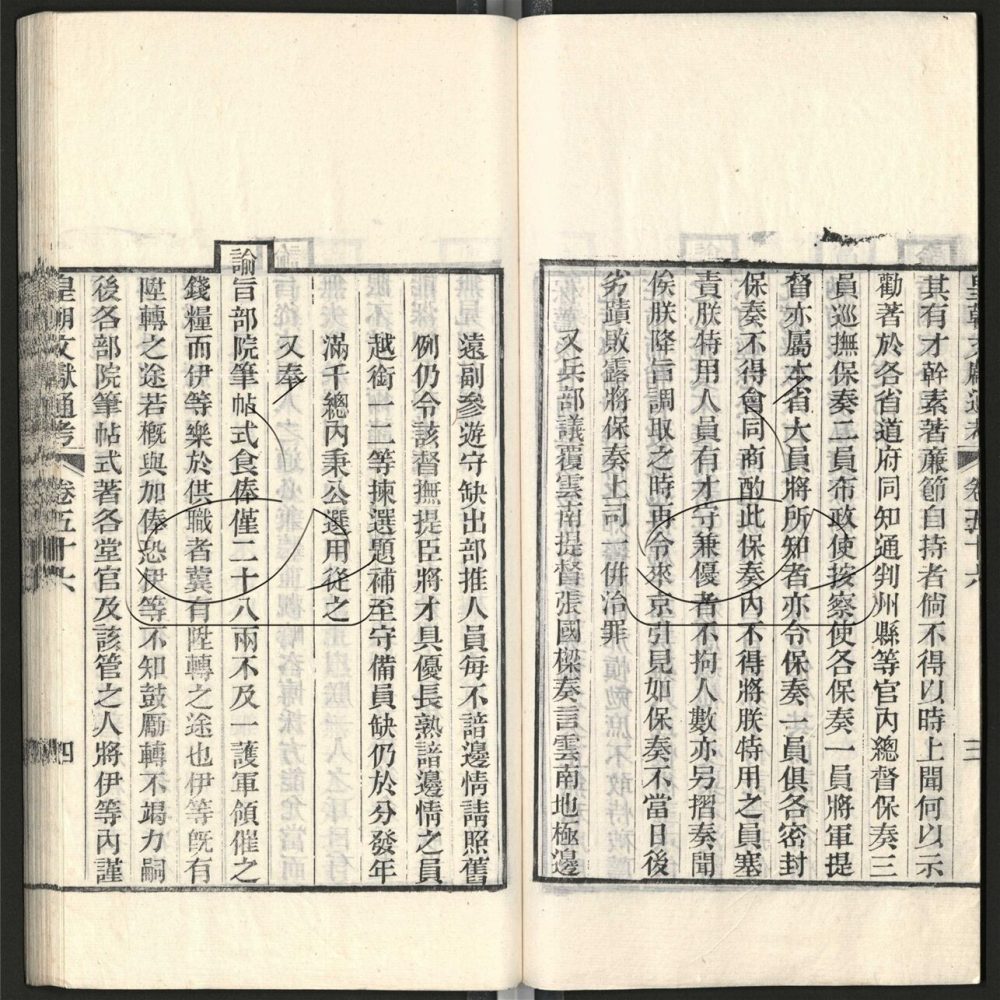 皇朝文獻通考 卷五十六 三
其有才幹素著亷節自持者倘不得以時上聞何以示
勸著於各省道府同知通判州縣等官內總督保奏三
員巡撫保奏二員布政使按察使各保奏一員將軍提
督亦屬本省大員將所知者亦令保奏一員俱各密封
保奏不得會同商酌此保奏內不得將朕特用之員塞
責朕特用人員有才守兼優者不拘人數亦另摺奏聞
俟朕降旨調取之時再令來京引見如保奏不當日後
劣蹟敗露將保奏上司一倂治罪
又兵部議覆雲南提督張國樑奏言雲南地極邊
遠副參遊守缺出部推人員每不諳邊情請照舊
例仍令該督撫提臣將才具優長熟諳邊情之員
越銜一二等揀選題補至守備員缺仍於分發年
滿千總內秉公選用從之
又奉
諭旨部院筆帖式食俸僅二十八兩不及一護軍領催之
錢糧而伊等樂於供職者冀有陞轉之途也伊等旣有
陞轉之途若槪與加俸恐伊等不知鼓勵轉不竭力嗣
後各部院筆帖式著各堂官及該管之人將伊等內謹
皇朝文獻通考 卷五十六 四